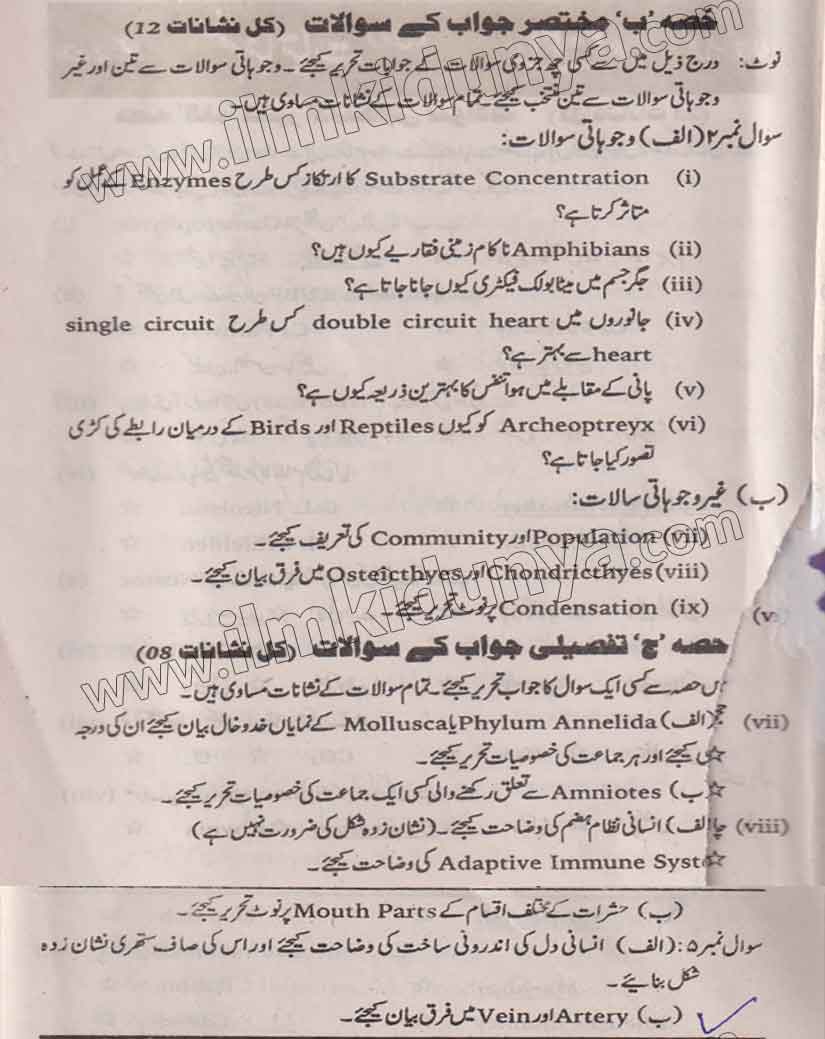 حصہ ’ب‘ مختصر جواب کے سوالات (کل نشانات 12)
نوٹ: درج ذیل میں سے کسی چھ جزوی سوالات کے جوابات تحریر کیجئے۔ وجوہاتی سوالات سے تین اور غیر
وجوہاتی سوالات سے تین منتخب کیجئے۔ تمام سوالات کے نشانات مساوی ہیں۔
سوال نمبر۲ (الف) وجوہاتی سوالات:
(i) Substrate Concentration کا ارتکاز کس طرح Enzymes کے عمل کو
متاثر کرتا ہے؟
(ii) Amphibians ناکام زمینی فقاریے کیوں ہیں؟
(iii) جگر جسم میں میٹابولک فیکٹری کیوں جانا جاتا ہے؟
(iv) جانوروں میں double circuit heart کس طرح single circuit
heart سے بہتر ہے؟
(v) پانی کے مقابلے میں ہوا تنفس کا بہترین ذریعہ کیوں ہے؟
(vi) Archeoptreyx کو کیوں Reptiles اور Birds کے درمیان رابطے کی کڑی
تصور کیا جاتا ہے؟
(ب) غیر وجوہاتی سالات:
(vii) Population اور Community کی تعریف کیجئے۔
(viii) Chondricthyes اور Osteicthyes میں فرق بیان کیجئے۔
(ix) Condensation پر نوٹ تحریر کیجئے۔
حصہ ’ج‘ تفصیلی جواب کے سوالات (کل نشانات 08)
حصہ سے کسی ایک سوال کا جواب تحریر کیجئے۔ تمام سوالات کے نشانات مساوی ہیں۔
(vii) (الف) Phylum Annelida یا Mollusca کے نمایاں خدوخال بیان کیجئے ان کی درجہ
کیجئے اور ہر جماعت کی خصوصیات تحریر کیجئے۔
☆ ب) Amniotes سے تعلق رکھنے والی کسی ایک جماعت کی خصوصیات تحریر کیجئے۔
(viii) الف) انسانی نظام ہضم کی وضاحت کیجئے۔ (نشان زدہ شکل کی ضرورت نہیں ہے)
☆ Adaptive Immune Syst کی وضاحت کیجئے۔
(ب) حشرات کے مختلف اقسام کے Mouth Parts پر نوٹ تحریر کیجئے۔
سوال نمبر۵: (الف) انسانی دل کی اندرونی ساخت کی وضاحت کیجئے اور اس کی صاف ستھری نشان زدہ
شکل بنائیے۔
(ب) Artery اور Vein میں فرق بیان کیجئے۔
www.ilmkidunya.com
www.ilmkidunya.com
www.ilmkidunya.com